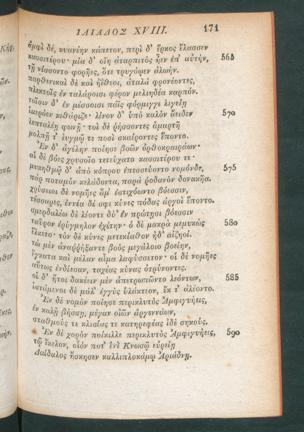 ΙΛΙΑΔΟΣ ΧVΙΙΙ. 171
ἀμφὶ δέ, κυανέην κάπετον, περὶ δ᾽ ἕρκος ἔλασσεν
κασσιτέρου· μία δ᾽ οἴη ἀταρπιτὸς ἦεν ἐπ᾽ αὐτήν, 565
τῇ νίσσοντο φορῆες, ὅτε τρυγόῳεν ἀλωήν.
παρθενικαὶ δὲ καὶ ἠΐθεοι, ἀταλὰ φρονέοντες,
πλεκτοῖς ἐν ταλάροισι φέρον μελιηδέα καρπόν.
τοῖσιν δ᾽ ἐν μέσσοισι πάϊς φόρμιγγι λιγείῃ
ἱμερόεν κιθάριζε· λίνον δ᾽ ὑπὸ καλὸν ἄειδεν 570
λεπταλέῃ φωνῇ· τοὶ δὲ ῥήσσοντες ἁμαρτῆ
μολπῇ τ᾽ ἰυγμῷ τε ποσὶ σκαίροντες ἕποντο.
Ἐν δ᾽ ἀγέλην ποίησε βοῶν ὀρθοκραιράων·
αἱ δὲ βόες χρυσοῖο τετεύχατο κασσιτέρου τε·
μυκηθμῷ δ᾽ ἀπὸ κόπρου ἐπεσσεύοντο νομόνδε, 575
πὰρ ποταμὸν κελάδοντα, παρὰ ῥοδανὸν δονακῆα.
χρύσειοι δὲ νομῆες ἅμ᾽ ἐστιχόωντο βόεσσιν,
τέσσαρες, ἐννέα δέ σφι κύνες πόδας ἀργοὶ ἕποντο.
σμερδαλέω δὲ λέοντε δύ᾽ ἐν πρώτῃσι βόεσσιν
ταῦρον ἐρύγμηλον ἐχέτην· ὁ δὲ μακρὰ μεμυκὼς 580
ἕλκετο· τὸν δὲ κύνες μετεκίαθον ἠδ᾽ αἰζηοί.
τὼ μὲν ἀναρρήξαντε βοὸς μεγάλοιο βοείην,
ἔγκατα καὶ μέλαν αἷμα λαφύσσετον· οἱ δὲ νομῆες
αὔτως ἐνδίεσαν, ταχέας κύνας ὀτρύνοντες.
οἱ δ᾽ ἤτοι δακέειν μὲν ἀπετρωπῶντο λεόντων, 585
ἱστάμενοι δὲ μάλ᾽ ἐγγὺς ὑλάκτεον, ἔκ τ᾽ ἀλέοντο.
Ἐν δὲ νομὸν ποίησε περικλυτὸς Ἀμφιγυήεις,
ἐν καλῇ βήσσῃ, μέγαν οἰῶν ἀργεννάων,
σταθμούς τε κλισίας τε κατηρεφέας ἰδὲ σηκούς.
Ἐν δὲ χορὸν ποίκιλλε περικλυτὸς Ἀμφιγυήεις, 590
τῷ ἴκελον, οἷόν ποτ᾽ ἐνὶ Κνωσῷ εὐρείῃ
Δαίδαλος ἤσκησεν καλλιπλοκάμῳ Ἀριάδνῃ.